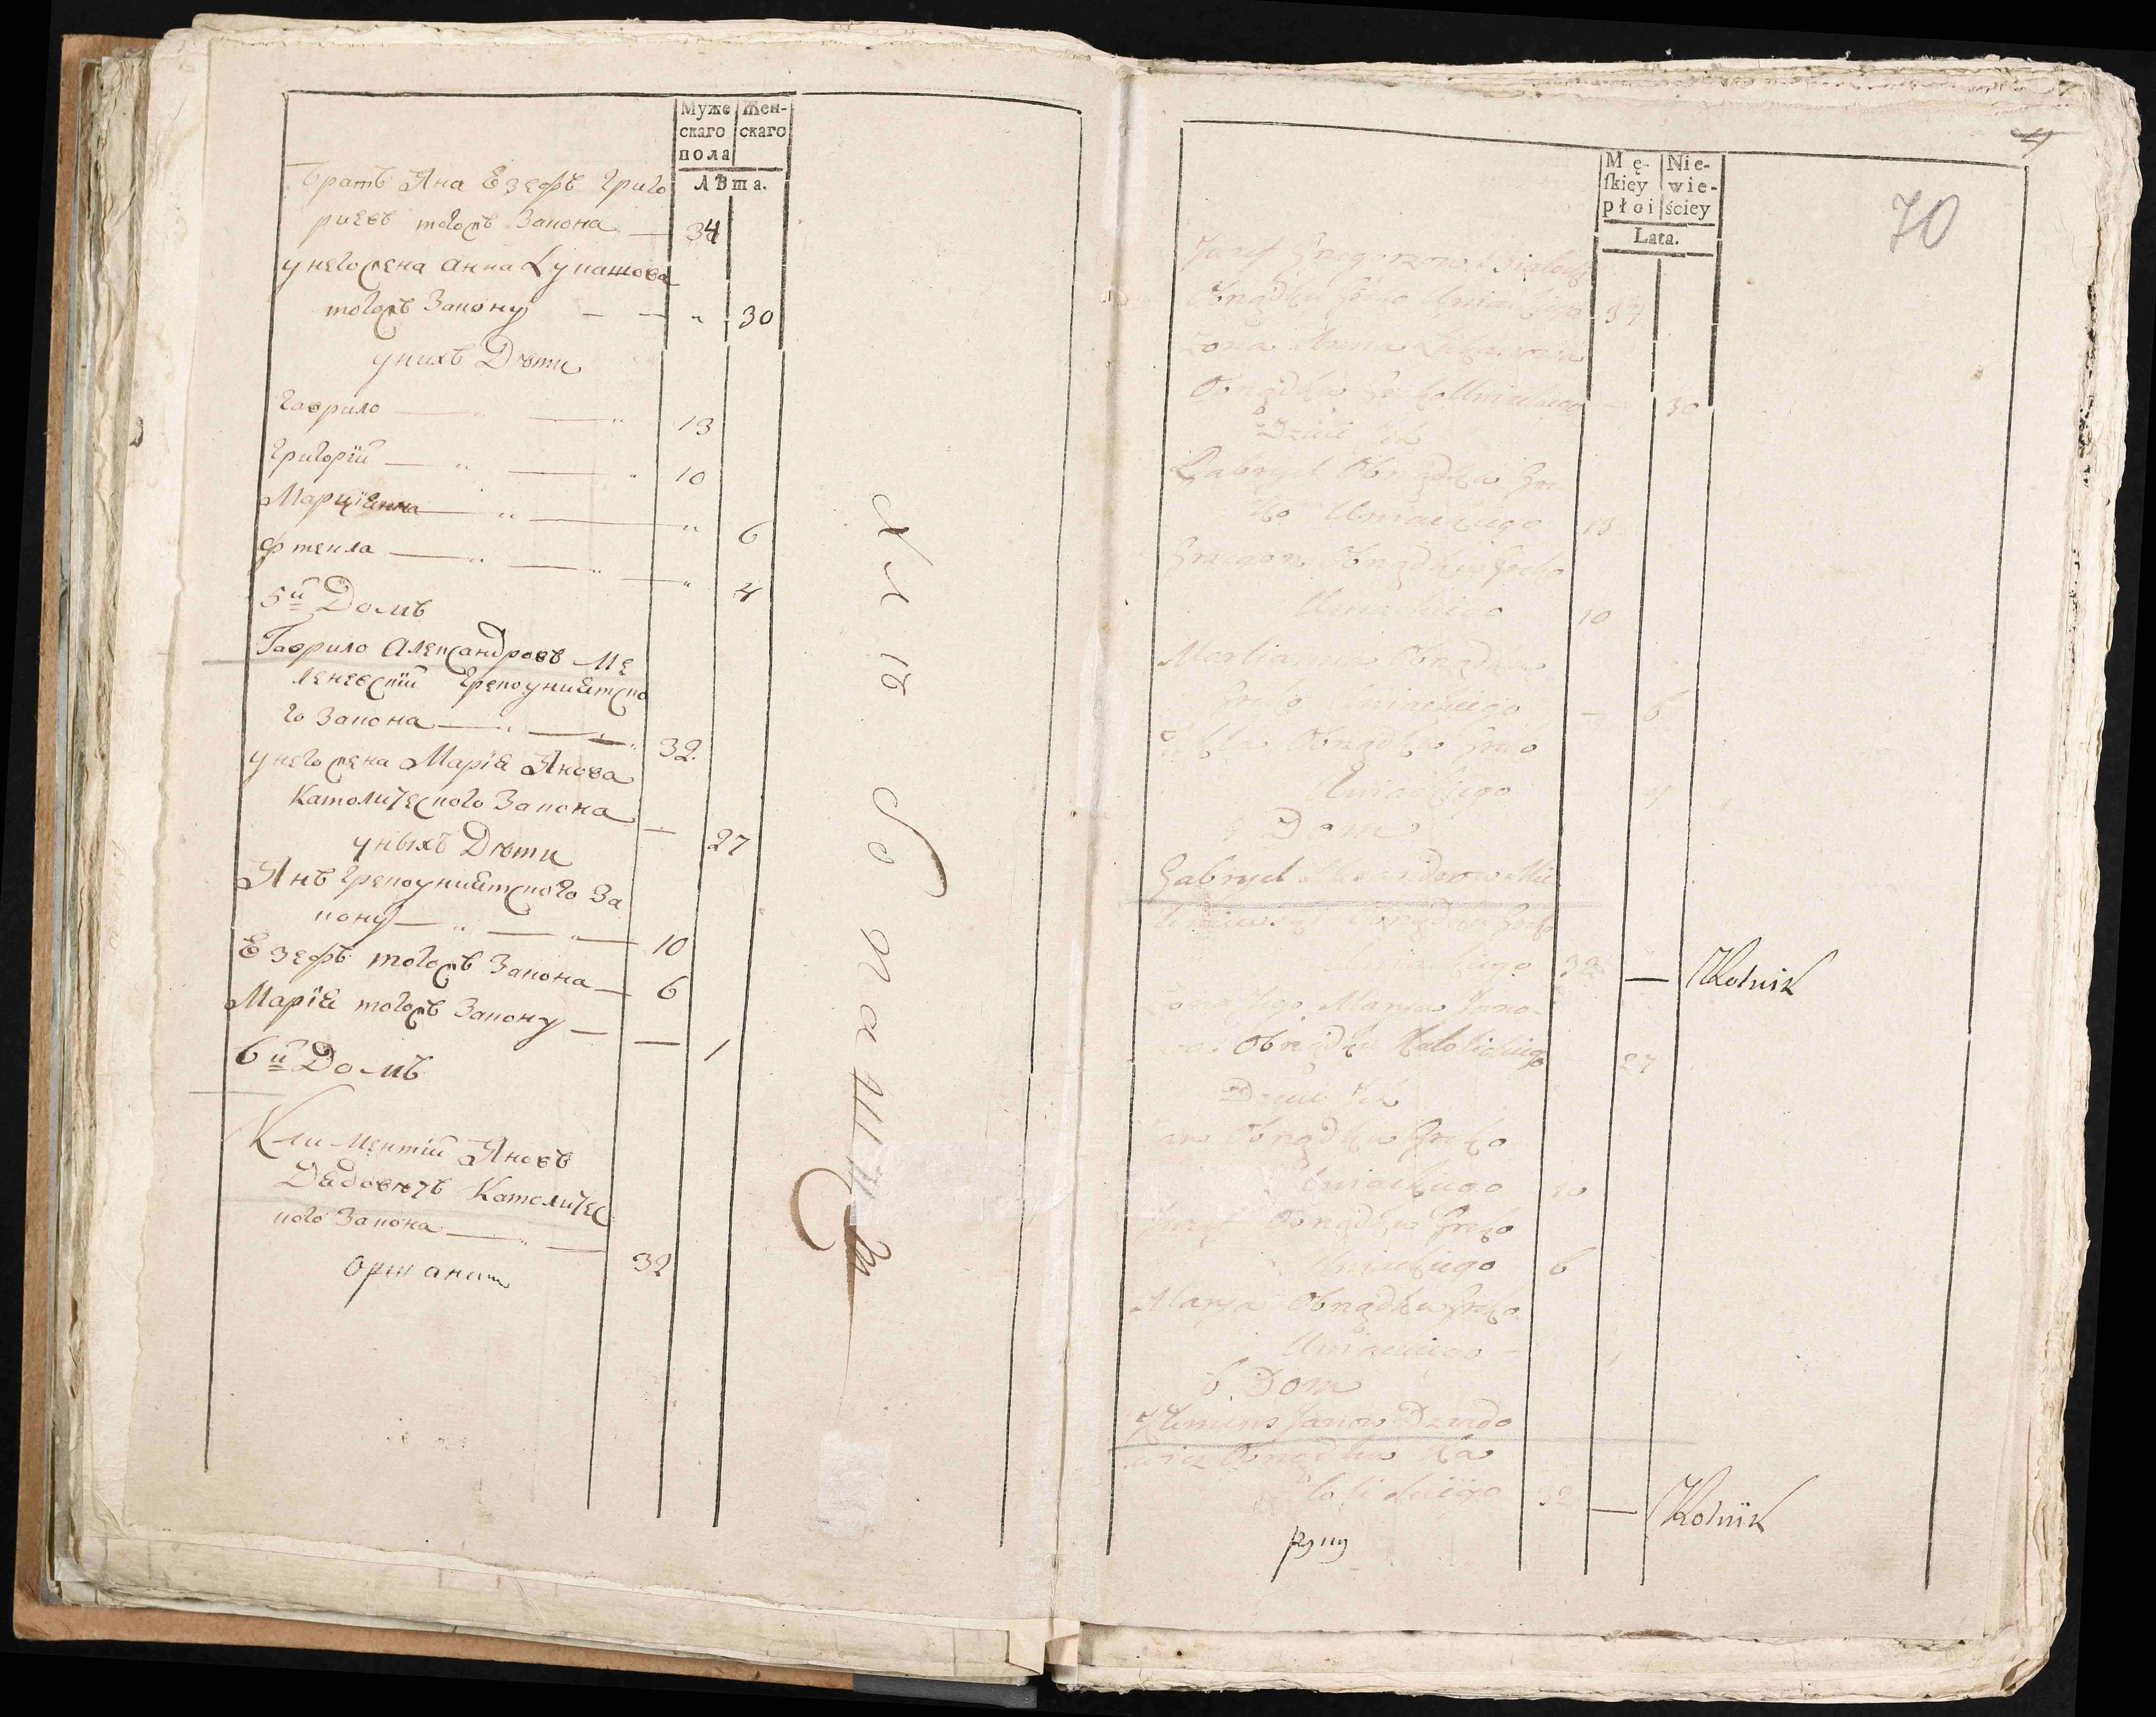 Муже Жен-
скаго скаго
пола
Лѣта.
братъ Яна Езефъ Григо
риевъ тогожъ Закона — 34
унего жена Анна Лукашова
тогожъ Закону — — „ 30
унихъ Дѣти
Гаврило — „ — „ 13
Григорій — „ — „ 10
Марціанна — „ — „ 6
Фтекла — „ — „ — „ 4
5й Домъ
Гаврило Александровъ Ме
леневскій Грекоуніатско
го Закона — „ — „ 32.
унего жена Марія Янова
Католического Закона — 27
уныхъ Дѣти
Янъ Грекоуніатского За
кону — „ — „ — 10
Езефъ тогожъ Закона — 6
Марія тогожъ Закону — — 1
6й Домъ
Климентій Яновъ
Дядовичъ Католичес
кого Закона — „ — 32
Mę- Nie-
ſkiey wie-
płoi ściey
Lata.
4
70
Jozef Grzegorzow
Obrządku Greko Uniackiego 34
Żona Anna Łukaszowa
Obrządku Greko Uniackiego — 30
Dzieci Ich
Gabryel Obrządku Gre
ko Uniackiego 13
Grzegorz Obrządku Greko
Uniackiego 10
Marlianna Obrządku
Greko Uniackiego — 6
Tekla Obrządku Greko
Uniackiego 4
5 Dom
Gabryel Alexandrow Mie
leniewski Obrządku Greko
Uniackiego 32 — Rolnik
Żona Jego Marya Jano-
wa Obrządku Katolickiego 27
Dzieci Ich
Jan Obrządku Greko
Uniackiego 10
Jozef Obrządku Greko
Uniackiego 6
Marya Obrządku Greko
Uniackiego — 1
6. Dom
Klemens Janow Dziado
wicz Obrządku Ka
tolickiego 32 — Rolnik